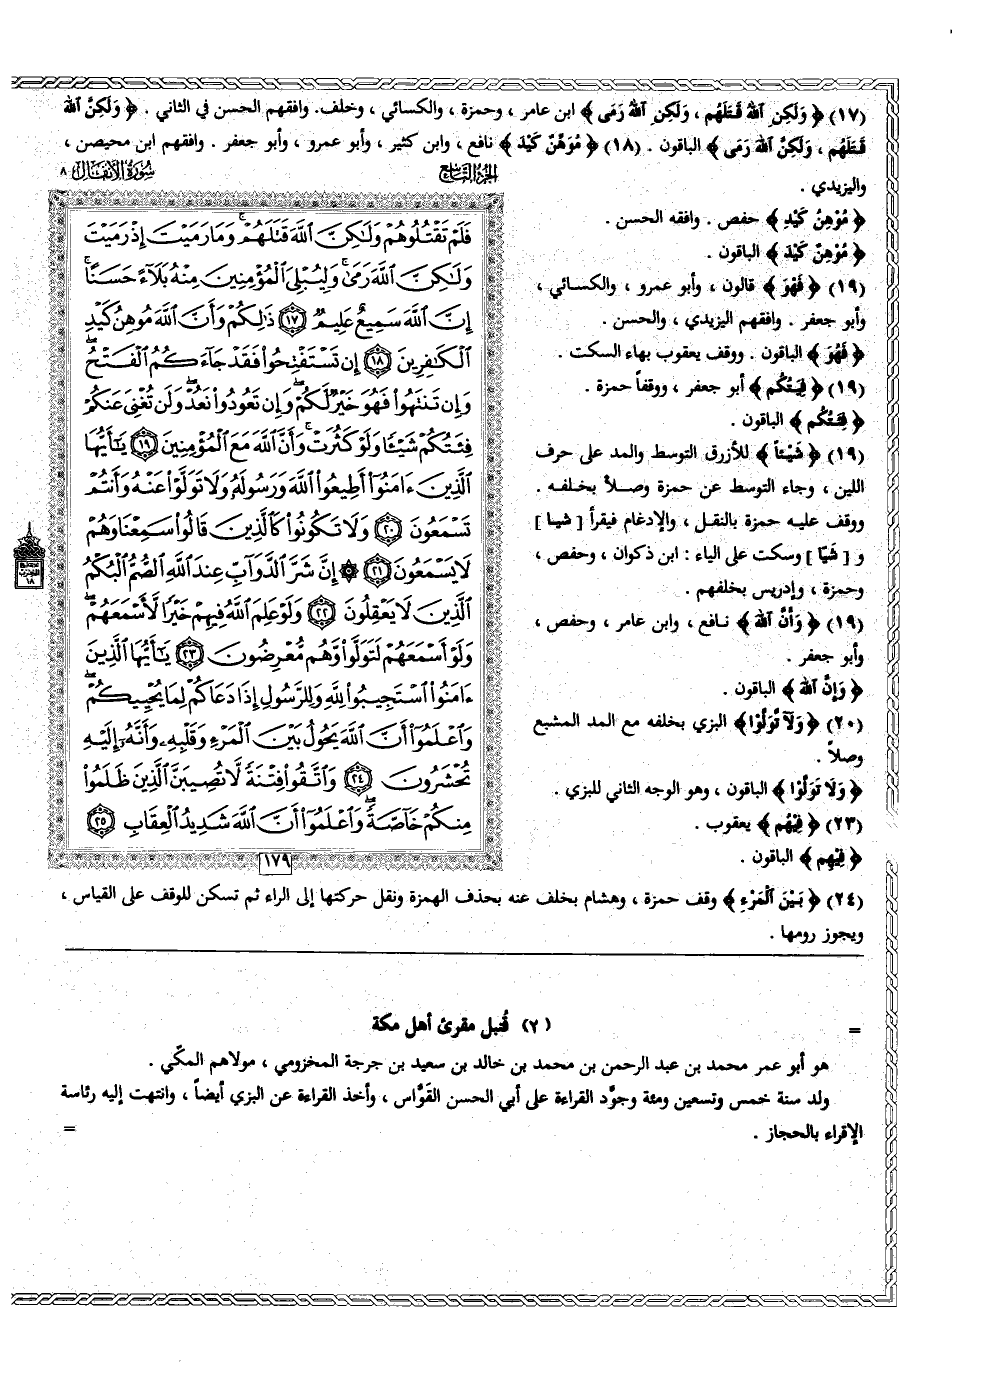 (١٧) ﴿ وَلَكِنِ ٱللَّهُ قَتَلَهُم ، وَلَكِنِ ٱللَّهُ رَمَى ﴾ ابن عامر ، وحمزة ، والكسائي ، وخلف. وافقهم الحسن في الثاني . ﴿ وَلَكِنَّ ٱللَّهَ
قَتَلَهُم ، وَلَكِنَّ ٱللَّهَ رَمَى ﴾ الباقون . (١٨) ﴿ مُوَهِّنٌ كَيْدَ ﴾ نافع ، وابن كثير ، وأبو عمرو ، وأبو جعفر . وافقهم ابن محيصن ،
واليزيدي .
﴿ مُوْهِنُ كَيْدِ ﴾ حفص . وافقه الحسن .
﴿ مُوْهِنٌ كَيْدَ ﴾ الباقون .
(١٩) ﴿ فَهْوَ ﴾ قالون ، وأبو عمرو ، والكسائي ،
وأبو جعفر . وافقهم اليزيدي ، والحسن .
﴿ فَهُوَ ﴾ الباقون . ووقف يعقوب بهاء السكت .
(١٩) ﴿ فِيَتُكُم ﴾ أبو جعفر ، ووقفاً حمزة .
﴿ فِئَتُكُم ﴾ الباقون .
(١٩) ﴿ شَيْئاً ﴾ للأزرق التوسط والمد على حرف
اللين ، وجاء التوسط عن حمزة وصلاً بخلفه .
ووقف عليه حمزة بالنقل ، والإدغام فيقرأ [ شيا ]
و [ شَيّا ] وسكت على الياء : ابن ذكوان ، وحفص ،
وحمزة ، وإدريس بخلفهم .
(١٩) ﴿ وَأَنَّ ٱللَّهَ ﴾ نافع ، وابن عامر ، وحفص ،
وأبو جعفر .
﴿ وَإِنَّ ٱللَّهَ ﴾ الباقون .
(٢٠) ﴿ وَلَآ تَّوَلَّوْا ﴾ البزي بخلفه مع المد المشبع
وصلاً .
﴿ وَلَا تَوَلَّوْا ﴾ الباقون ، وهو الوجه الثاني للبزي .
(٢٣) ﴿ فِيْهُم ﴾ يعقوب .
﴿ فِيْهِم ﴾ الباقون .
الجزء التاسع
سورة الأنفال ٨
فَلَمْ تَقْتُلُوهُمْ وَلَٰكِنَّ ٱللَّهَ قَتَلَهُمْ ۚ وَمَا رَمَيْتَ إِذْ رَمَيْتَ
وَلَٰكِنَّ ٱللَّهَ رَمَىٰ ۚ وَلِيُبْلِىَ ٱلْمُؤْمِنِينَ مِنْهُ بَلَآءً حَسَنًا ۚ
إِنَّ ٱللَّهَ سَمِيعٌ عَلِيمٌ ١٧ ذَٰلِكُمْ وَأَنَّ ٱللَّهَ مُوهِنُ كَيْدِ
ٱلْكَٰفِرِينَ ١٨ إِن تَسْتَفْتِحُوا۟ فَقَدْ جَآءَكُمُ ٱلْفَتْحُ ۖ
وَإِن تَنتَهُوا۟ فَهُوَ خَيْرٌ لَّكُمْ ۖ وَإِن تَعُودُوا۟ نَعُدْ وَلَن تُغْنِىَ عَنكُمْ
فِئَتُكُمْ شَيْـًٔا وَلَوْ كَثُرَتْ وَأَنَّ ٱللَّهَ مَعَ ٱلْمُؤْمِنِينَ ١٩ يَٰٓأَيُّهَا
ٱلَّذِينَ ءَامَنُوٓا۟ أَطِيعُوا۟ ٱللَّهَ وَرَسُولَهُۥ وَلَا تَوَلَّوْا۟ عَنْهُ وَأَنتُمْ
تَسْمَعُونَ ٢٠ وَلَا تَكُونُوا۟ كَٱلَّذِينَ قَالُوا۟ سَمِعْنَا وَهُمْ
لَا يَسْمَعُونَ ٢١ ۞ إِنَّ شَرَّ ٱلدَّوَآبِّ عِندَ ٱللَّهِ ٱلصُّمُّ ٱلْبُكْمُ
ٱلَّذِينَ لَا يَعْقِلُونَ ٢٢ وَلَوْ عَلِمَ ٱللَّهُ فِيهِمْ خَيْرًا لَّأَسْمَعَهُمْ ۖ
وَلَوْ أَسْمَعَهُمْ لَتَوَلَّوا۟ وَّهُم مُّعْرِضُونَ ٢٣ يَٰٓأَيُّهَا ٱلَّذِينَ
ءَامَنُوا۟ ٱسْتَجِيبُوا۟ لِلَّهِ وَلِلرَّسُولِ إِذَا دَعَاكُمْ لِمَا يُحْيِيكُمْ ۖ
وَٱعْلَمُوٓا۟ أَنَّ ٱللَّهَ يَحُولُ بَيْنَ ٱلْمَرْءِ وَقَلْبِهِۦ وَأَنَّهُۥٓ إِلَيْهِ
تُحْشَرُونَ ٢٤ وَٱتَّقُوا۟ فِتْنَةً لَّا تُصِيبَنَّ ٱلَّذِينَ ظَلَمُوا۟
مِنكُمْ خَآصَّةً ۖ وَٱعْلَمُوٓا۟ أَنَّ ٱللَّهَ شَدِيدُ ٱلْعِقَابِ ٢٥
١٧٩
(٢٤) ﴿ بَيْنَ ٱلْمَرْءِ ﴾ وقف حمزة ، وهشام بخلف عنه بحذف الهمزة ونقل حركتها إلى الراء ثم تسكن للوقف على القياس ،
ويجوز رومها .
= (٢) قُنبل مقرئ أهل مكة
هو أبو عمر محمد بن عبد الرحمن بن محمد بن خالد بن سعيد بن جرجة المخزومي ، مولاهم المكّي .
ولد سنة خمس وتسعين ومئة وجوَّد القراءة على أبي الحسن القَوَّاس ، وأخذ القراءة عن البزي أيضاً ، وانتهت إليه رئاسة
الإقراء بالحجاز . =